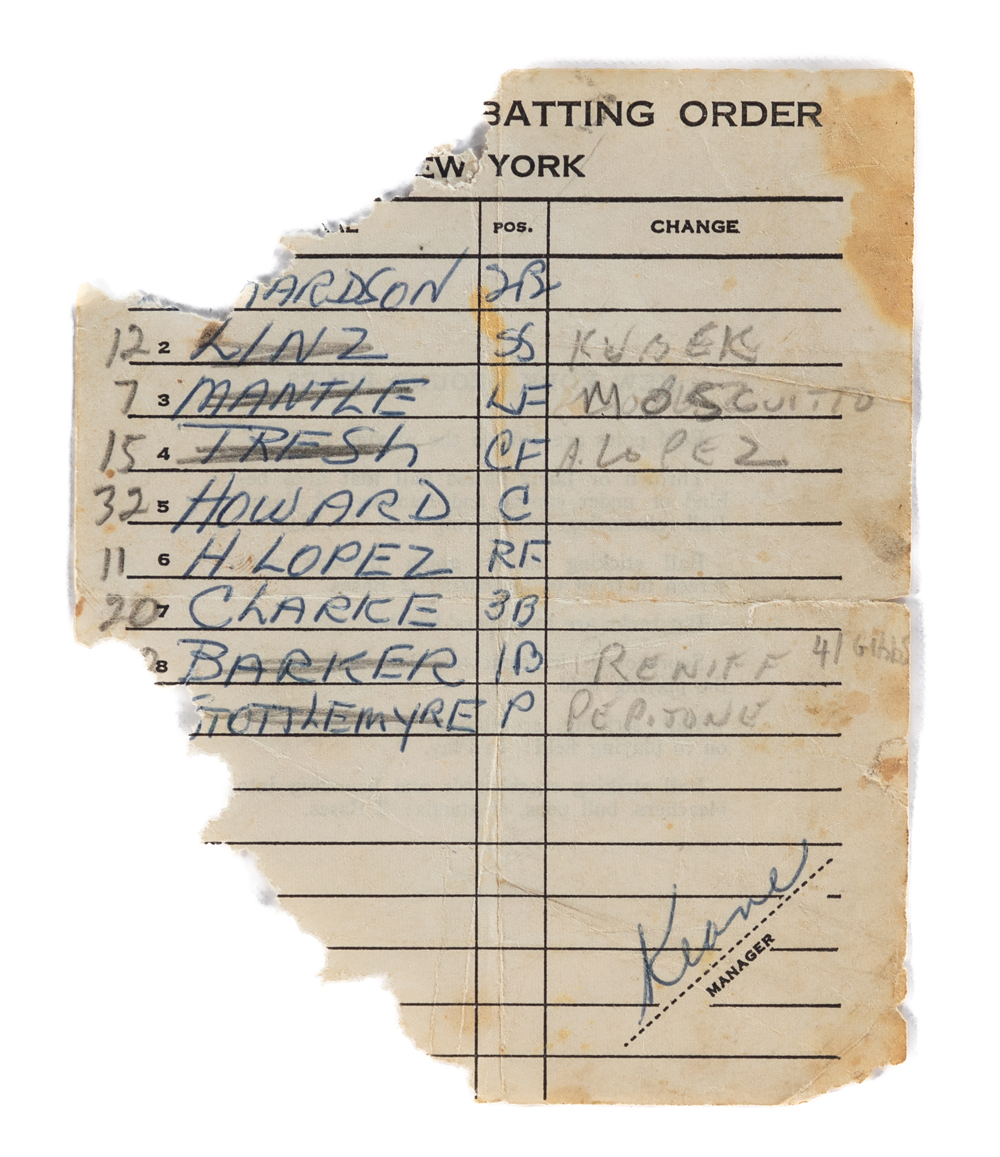 BATTING ORDER
EW YORK
POS. CHANGE
ARDSON 2B
12 2 LINZ SS KUBEK
7 3 MANTLE LF MOSCHITTO
15 4 TRESH CF A. LOPEZ
32 5 HOWARD C
11 6 H. LOPEZ RF
20 7 CLARKE 3B
8 BARKER 1B RENIFF 41 Gibbs
STOTTLEMYRE P PEPITONE
Keane
MANAGER